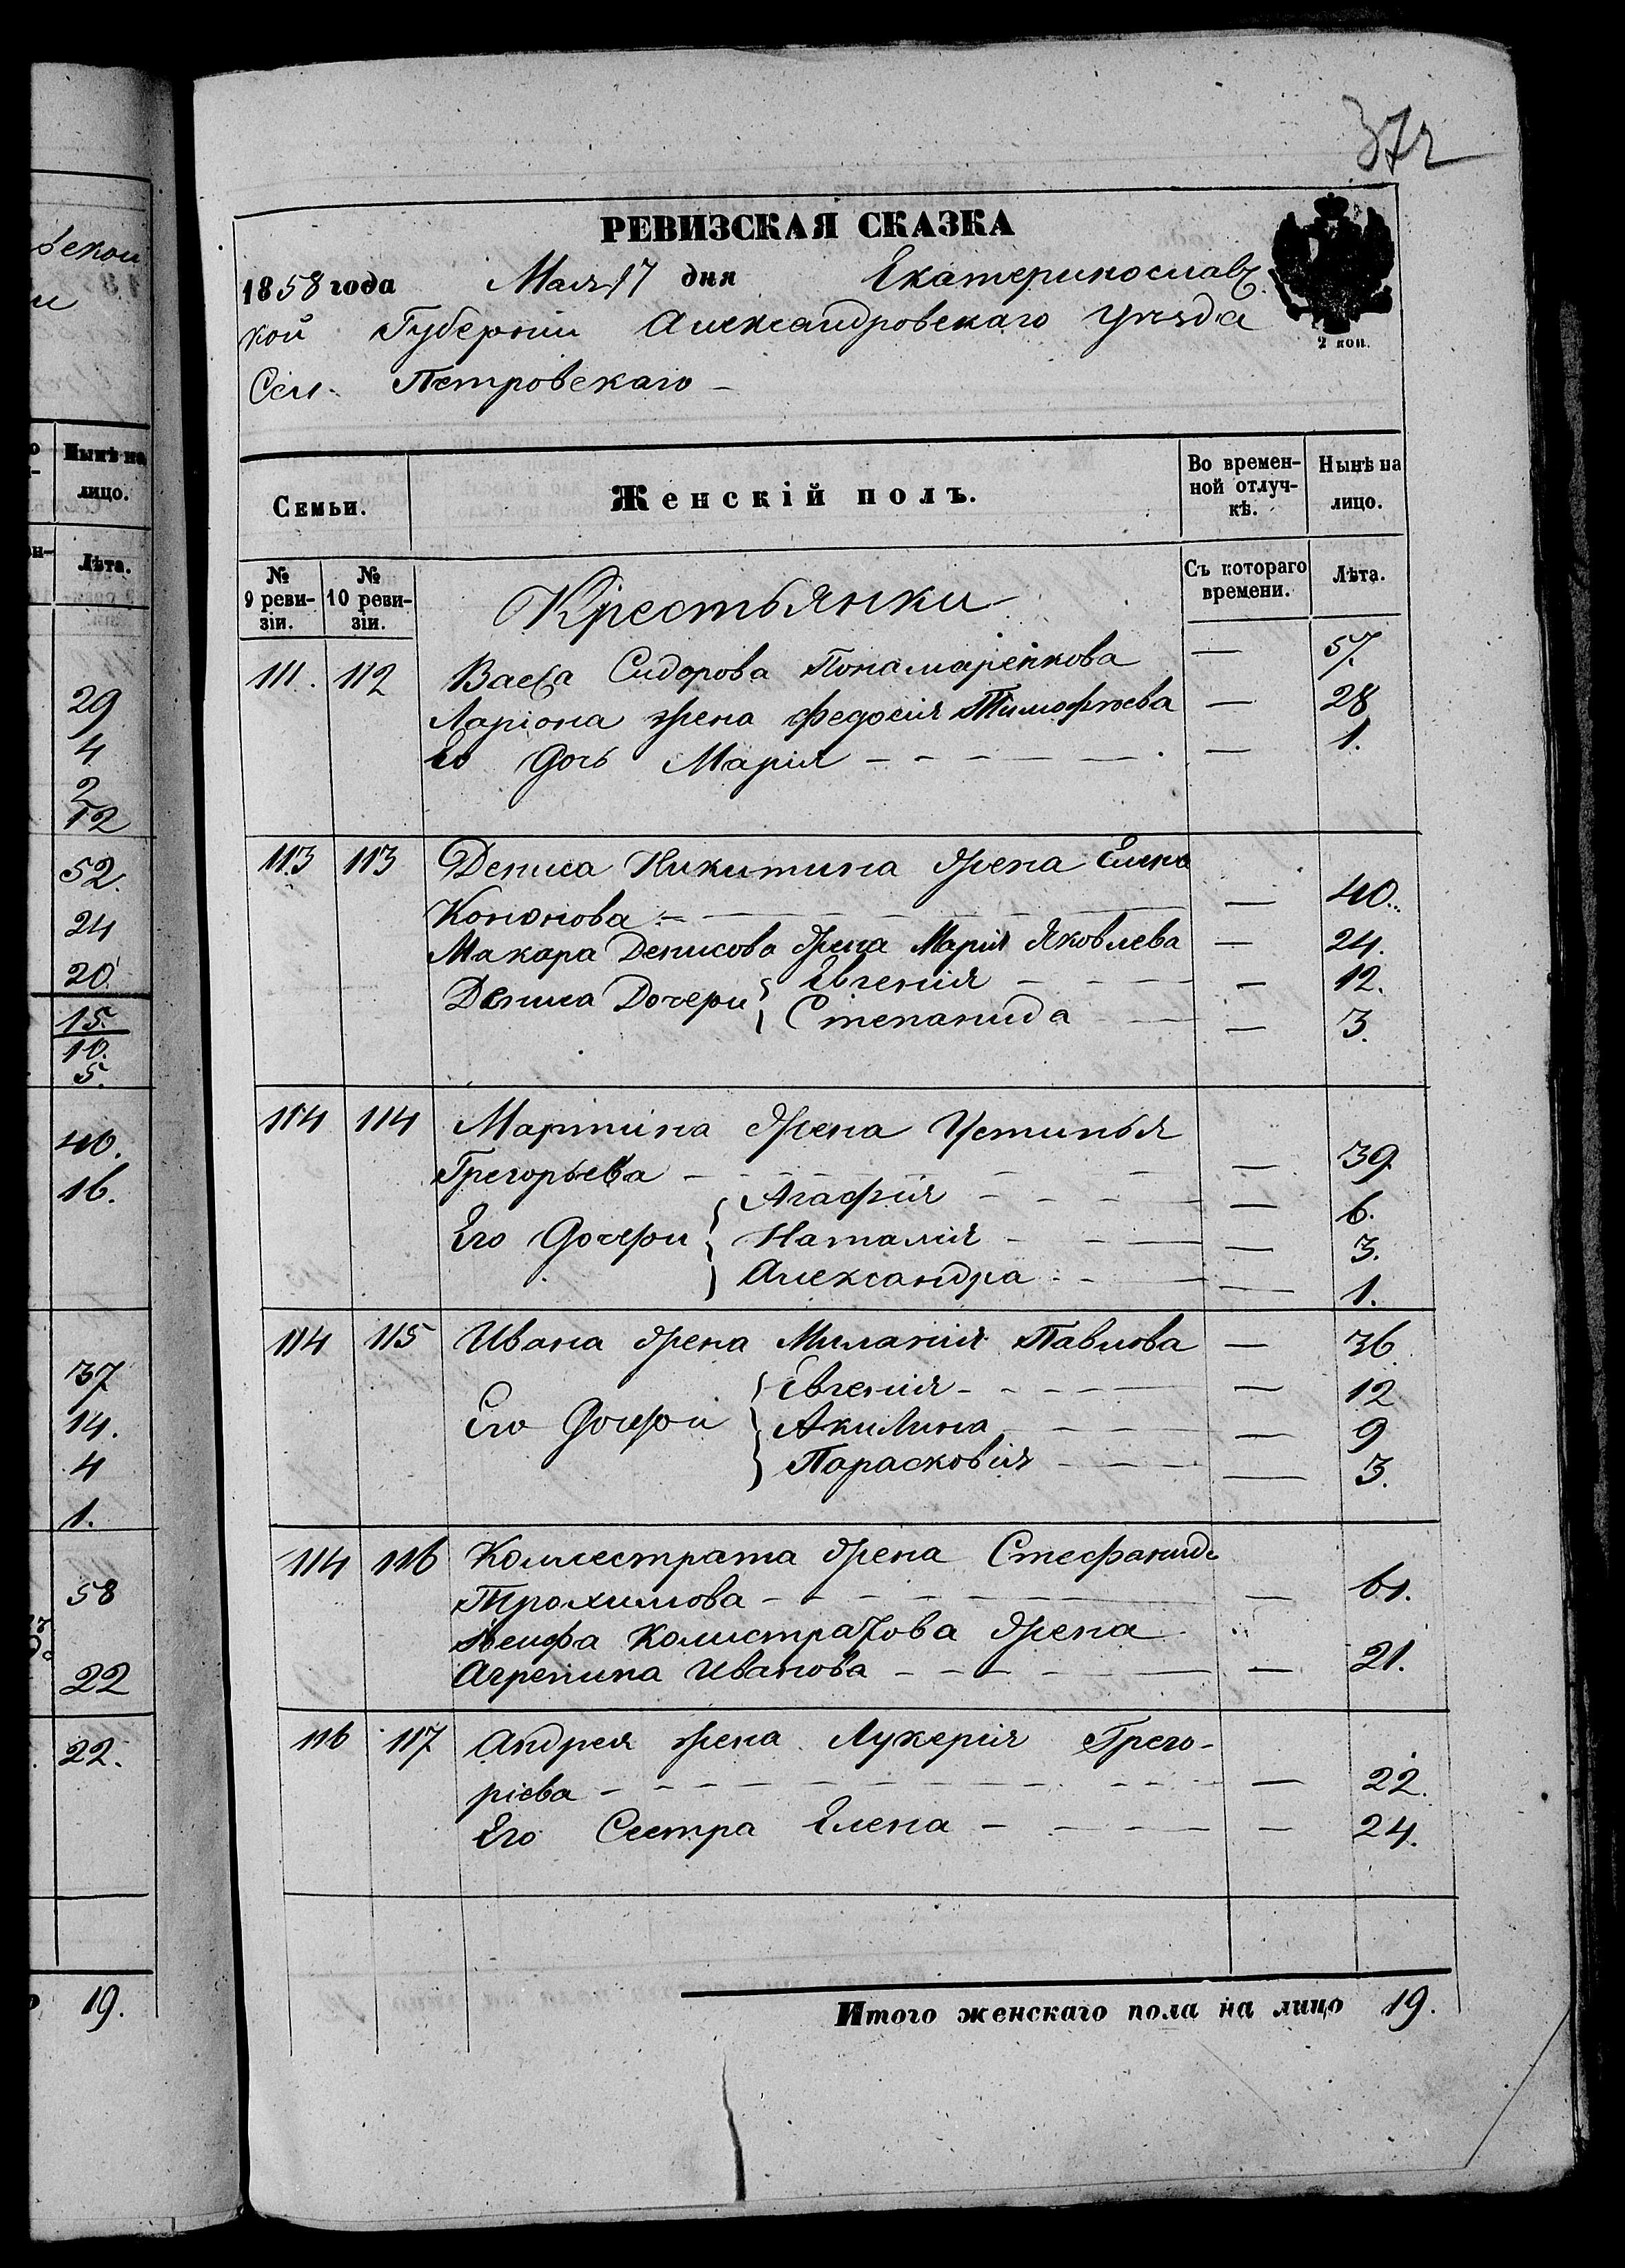 372
РЕВИЗСКАЯ СКАЗКА
1858 года Мая 17 дня Екатеринославс
кой Губернии Александровскаго Уезда
2 коп.
Сел. Петровскаго
Семьи. Женскій полъ. Во времен-ной отлуч-кѣ. Нынѣ на лицо.
№ 9 реви-зіи. № 10 реви-зіи. Крестьянки Съ котораго времени. Лѣта.
111. 112 Васса Сидорова Понамаренкова — 57.
Ларіона жена Федосія Тимофѣева — 28
Ео дочь Марія — 1.
113 113 Дениса Никитина жена Елена
Кононова — 40.
Макара Денисова жена Марія Яковлева — 24.
Дениса Дочери Евгенія — 12.
Степанида — 3.
114 114 Мартина жена Устинья
Грегорьева — 39
Его дочери Агафія — 6.
Наталія — 3.
Александра — 1.
114 115 Ивана жена Миланія Павлова — 36
Евгенія — 12
Его дочери Акилина — 9
Парасковія — 3.
114 116 Колестрата жена Стефанида
Трохимова — 61.
Колистратова жена
Агрепина Иванова — 21.
116 117 Андрея жена Лукерія Грего-
ріева — 22.
Его Сестра Елена — 24.
Итого женскаго пола на лицо 19.
Нынѣ на
лицо.
Лѣта.
29
4
2
12
52.
24
20.
15.
10.
5.
40.
16.
37
14.
4
1.
58
22
22.
19.